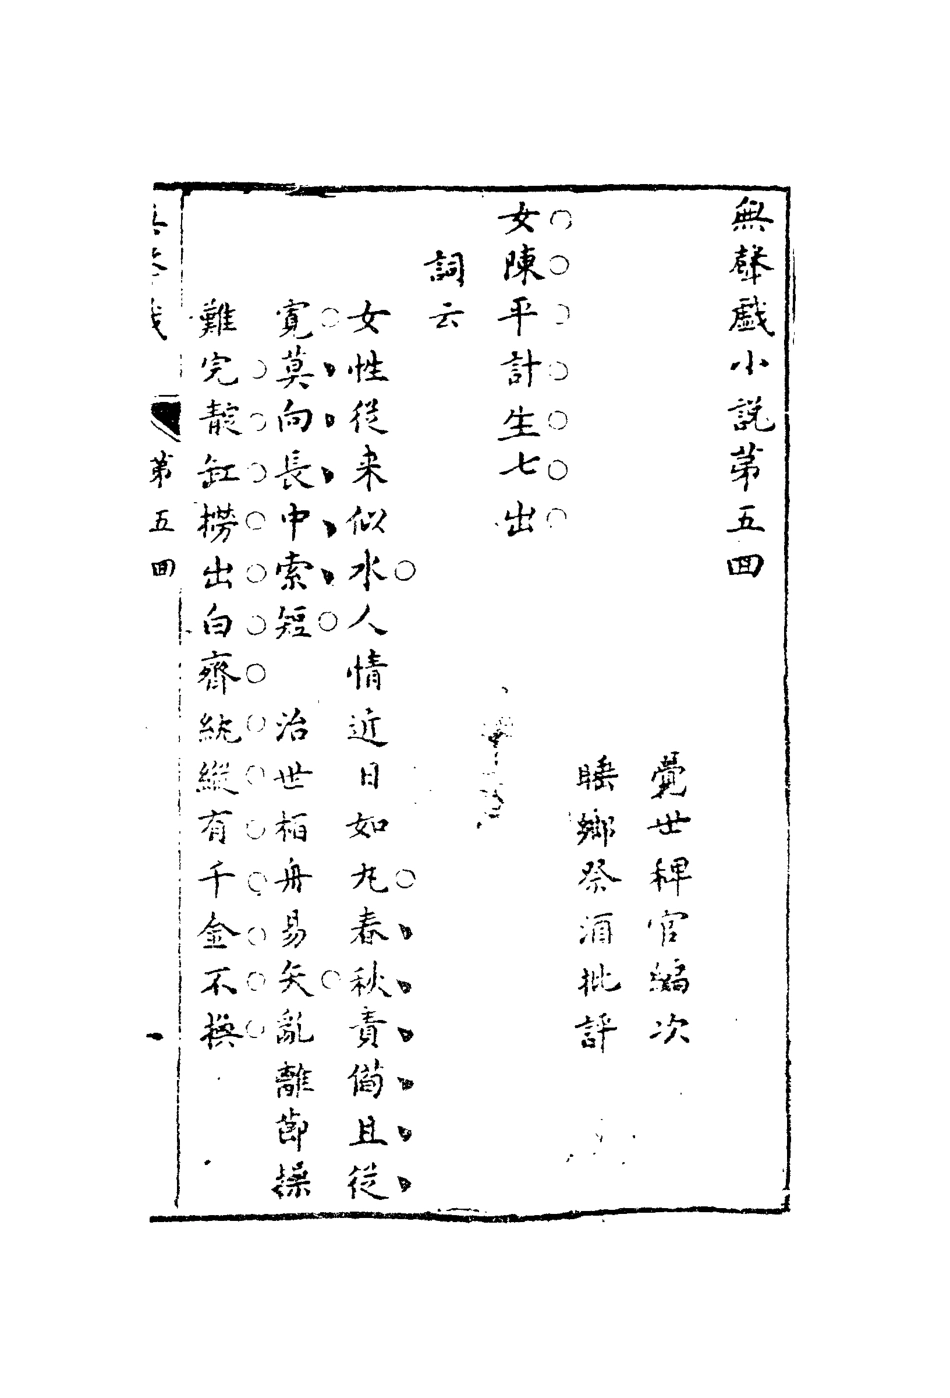 無聲戲小說第五回
覺世稗官編次
睡鄉祭酒批評
女陳平計生七出
詞云
女性從來似水人情近日如丸春秋責備且從
寬莫向長中索短　治世柏舟易矢亂離節操
難完靛缸撈出白齊紈縱有千金不換
第五回